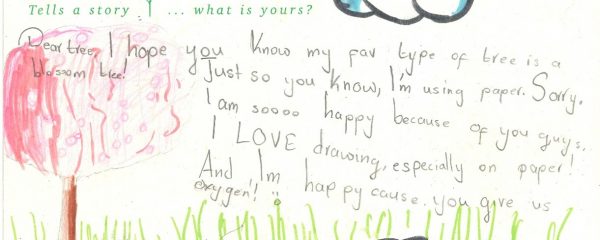 Tells a story ... what is yours?
Dear tree, I hope you know my fav type of tree is a
blossom tree! Just so you know, I'm using paper. Sorry.
I am soooo happy because of you guys.
I LOVE drawing, especially on paper!
And I'm happy cause you give us
oxygen!!